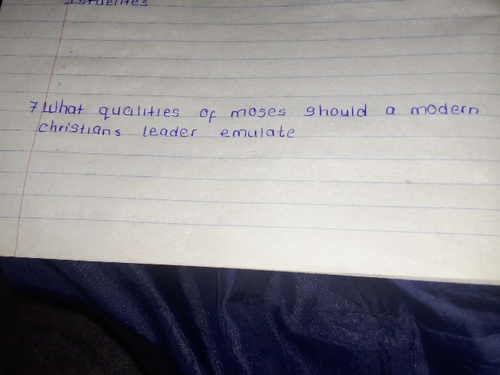 Israelites
7 What qualities of moses should a modern
christians leader emulate